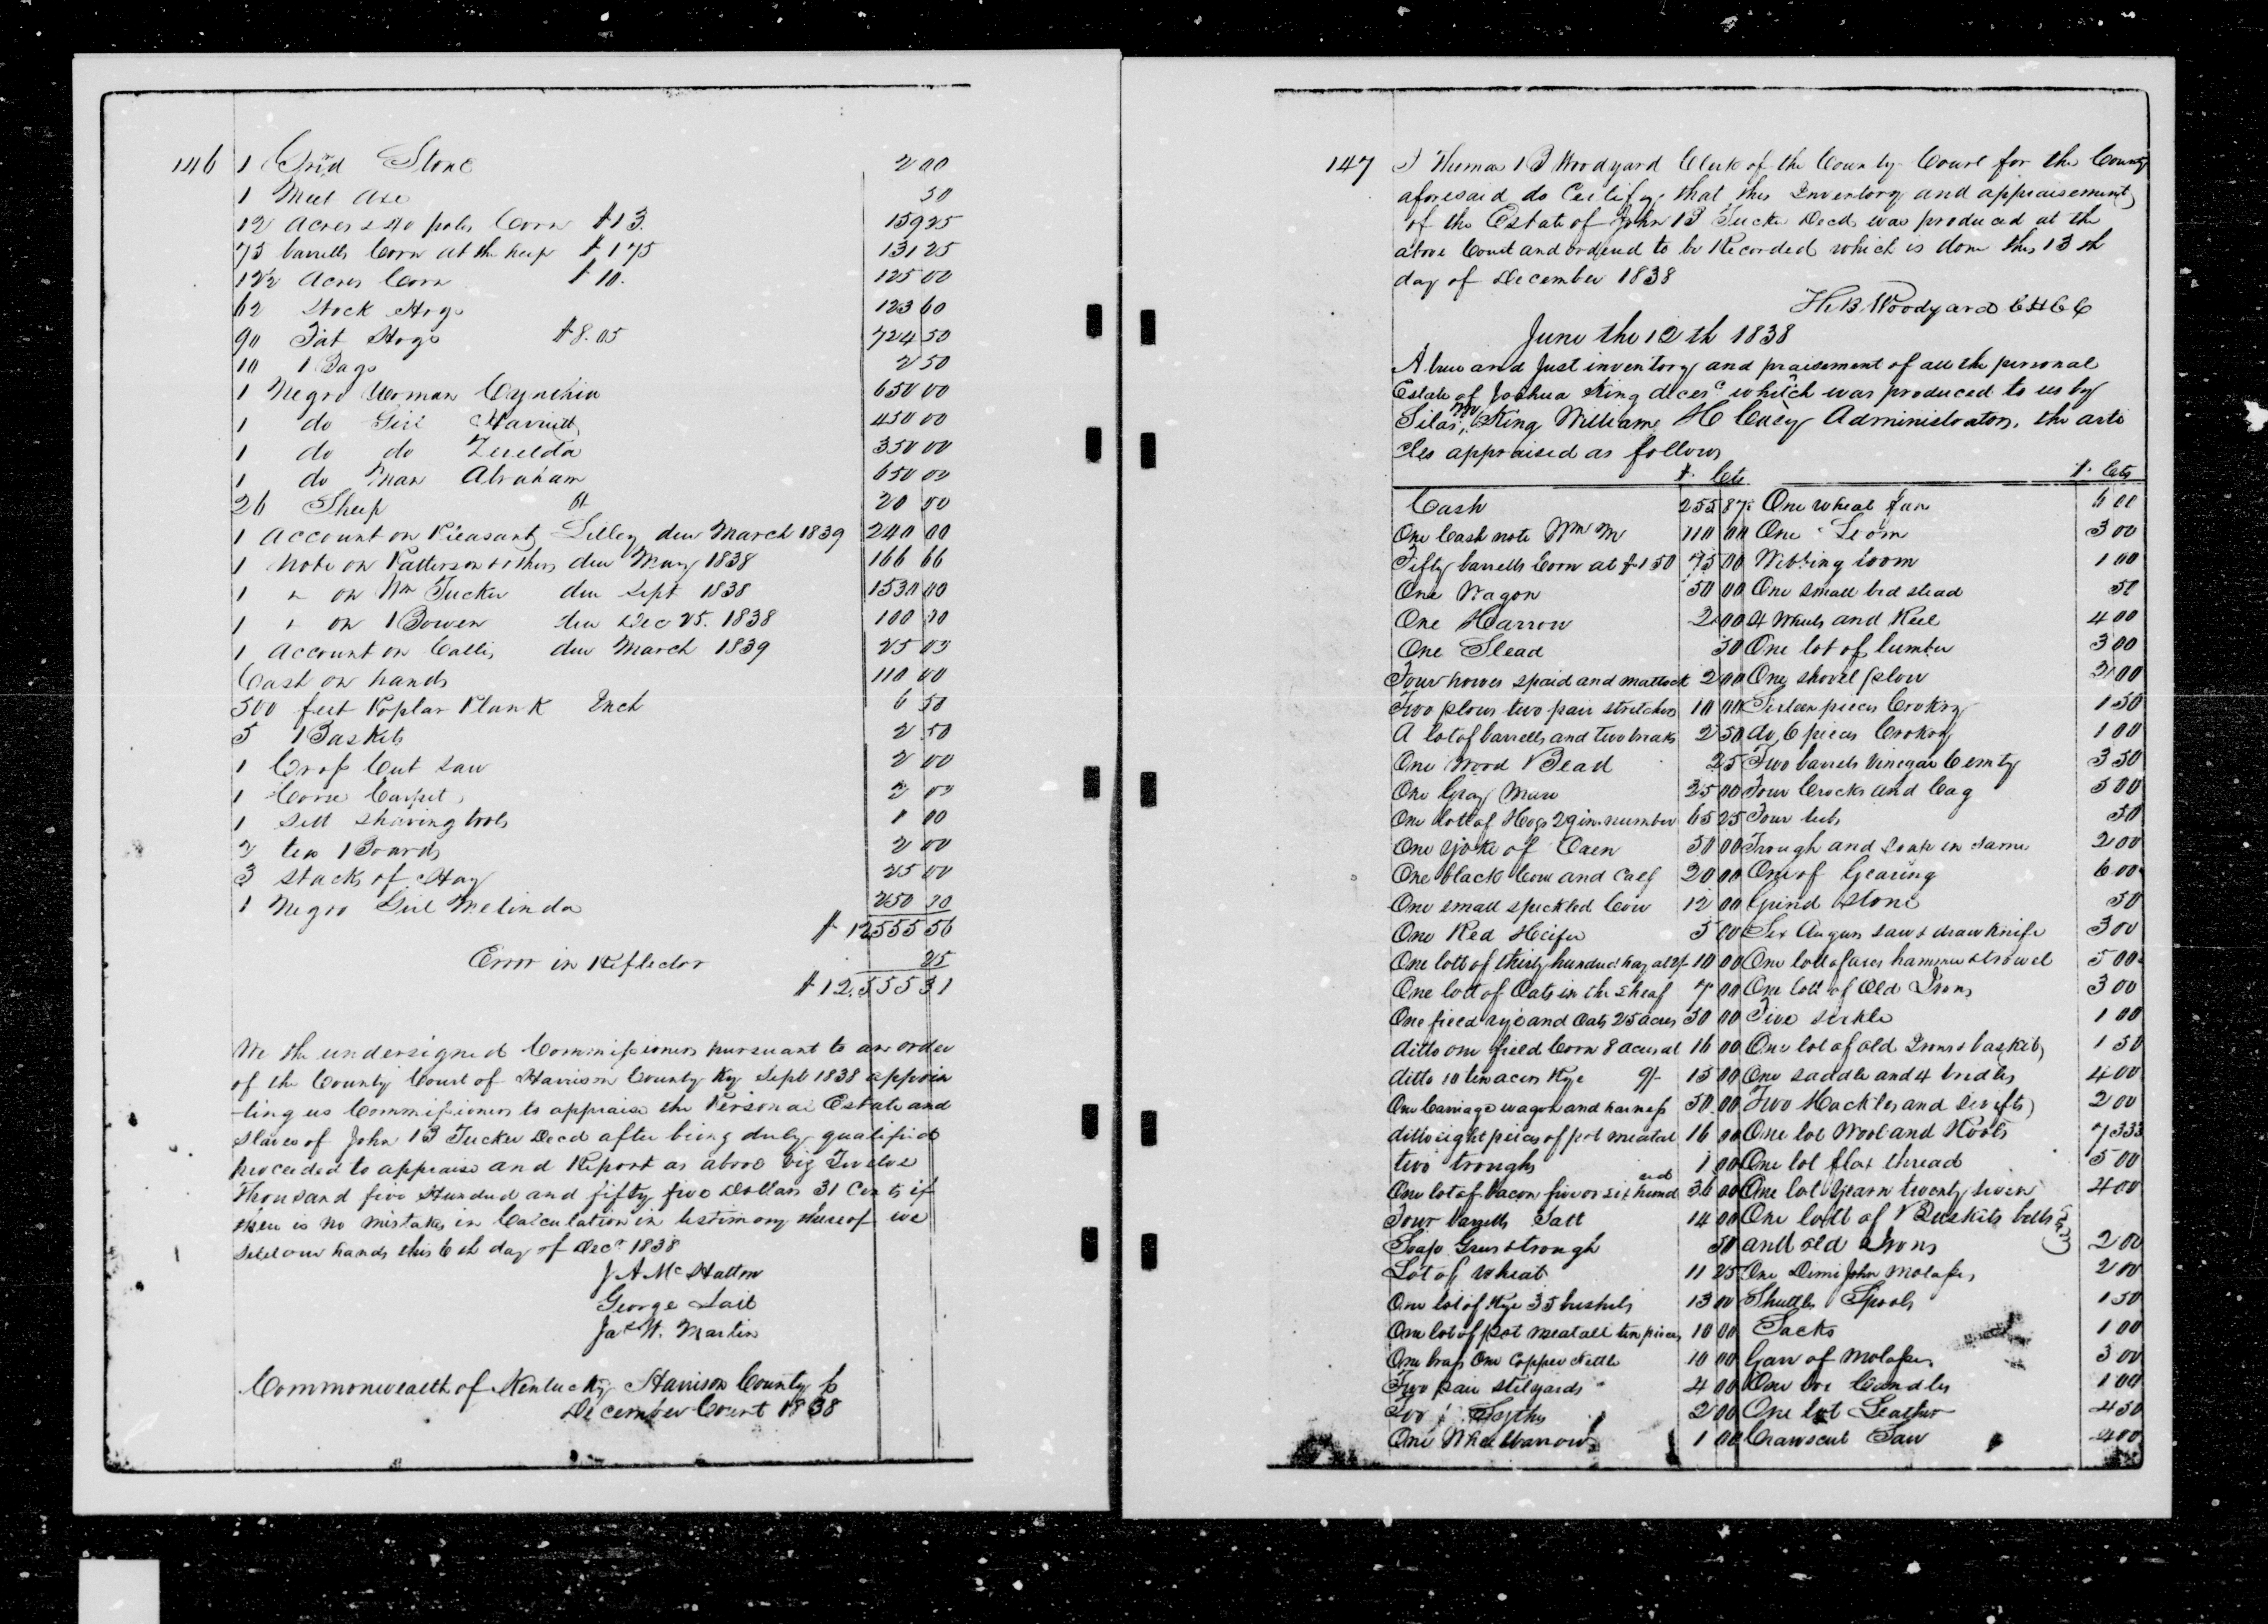 146
1 Grid Stone 2 00
1 Meet Axe 50
12 Acres & 40 poles Corn $13. 159 25
75 barrells Corn at the heap $1 75 131 25
12½ Acres Corn $10. 125 00
62 Stock Hogs 123 60
90 Fat Hogs $8.05 724 50
10 Bags 2 50
1 Negro Woman Cynthia 650 00
1 do Girl Harriett 450 00
1 do do Zerelda 350 00
1 do Man Abraham 650 00
26 Sheep 20 00
1 Account on Pleasant Lilley due March 1839 240 00
1 Note on Patterson & others due May 1838 166 66
1 " on Wm Tucker due Sept 1838 1530 00
1 " on Bowen due Dec 25. 1838 100 00
1 Account on Callis due March 1839 25 00
Cash on hands 110 00
500 feet Poplar Plank Inch 6 50
5 Baskets 2 50
1 Cross Cut Saw 2 00
1 Carpet 2 00
1 Sett Shaving tools 1 00
2 tea Boards 2 00
3 Stacks of Hay 25 00
1 Negro Girl Melinda 250 00
$12555 56
Error in Reflector 25
$12.555 31
We the undersigned Commissioners pursuant to an order
of the County Court of Harrison County Ky Sept 1838 appoin
-ting us Commissioners to appraise the Personal Estate and
Slaves of John B Tucker Decd after being duly qualified
proceeded to appraise and Report as above viz Twelve
Thousand five Hundred and fifty five Dollars 31 Cents if
there is no mistake in Calculation in testimony thereof we
set our hands this 6th day of Decr 1838
J A McHatton
George Lail
Jas W. Martin
Commonwealth of Kentucky Harrison County Sc
December Court 1838
147
I Thomas B Woodyard Clerk of the County Court for the County
aforesaid do Certify that this Inventory and appraisement
of the Estate of John B Tucker Decd was produced at the
above Court and ordered to be Recorded which is done this 13th
day of December 1838
Th. B. Woodyard C H C C
June the 12th 1838
A true and Just inventory and praisement of all the personal
Estate of Joshua King decesd which was produced to us by
Silas King William H Cacy Administrators. the arti
cles appraised as follows
$. Cts $. Cts
Cash 255 87½ One wheat fan 6 00
One Cash note Wm M 110 00 One Loom 3 00
Fifty barrells Corn at $1 50 75 00 Webbing loom 1 00
One Wagon 50 00 One small bed stead 50
One Harrow 2 00 4 Wheels and Reel 4 00
One Slead 50 One lot of lumber 3 00
Four howes spaid and mattock 2 00 One shovel plow 2 00
Two plows two pair stretchers 10 00 Sixteen pieces Crokry 1 50
A lot of barrells and two breaks 2 50 do 6 pieces Crokry 1 00
One Wood Bead 25 Two barrels vinegar & emty 3 50
One Gray Mare 25 00 Four Crocks and Cag 5 00
One lott of Hogs 29 in number 65 25 Four tubs 50
One yoke of Oxen 50 00 Trough and soap in same 2 00
One black Cow and Calf 20 00 One of Gearing 6 00
One small speckled Cow 12 00 Grind Stone 50
One Red Heifer 5 00 Six Augurs saw & draw knife 3 00
One lott of thirty hundred hay at 2/ 10 00 One lott of axes hammer & trowel 5 00
One lott of Oats in the sheaf 7 00 One lott of Old Irons 3 00
One field rye and Oats 25 acres 50 00 Five sickle 1 00
ditto one field Corn 8 acres at 16 00 One lot of old Irons & baskets 1 50
ditto 10 ten acres Rye 9/- 15 00 One saddle and 4 bridles 4 00
One Carriage wagon and harness 50.00 Two Hackles and 2 00
ditto eight pieces of pot meatal 16 00 One lot Wool and Rools 7 33⅓
two troughs 1 00 One lot flax thread 5 00
One lot of bacon five or six hundred 36 00 One lot yearn twenty seven 4 00
Four barrells Salt 14 00 One lott of Buskits bells
Soap Grees & trough 50 and old Irons 2 00
Lot of wheat 11 25 One Demi John Molases 2 00
One lot of Rye 35 bushels 13 00 Shuttles Spools 1 50
One lot of pot meatall ten pieces 10 00 Sacks 1 00
One brass One Copper Kettle 10 00 Garr of Molases 3 00
Two pair stilyards 4 00 One box Candles 1 00
Two Sythes 2 00 One lot Leather 4 50
One Wheelbarrow 1 00 Crawscut Saw 4 00